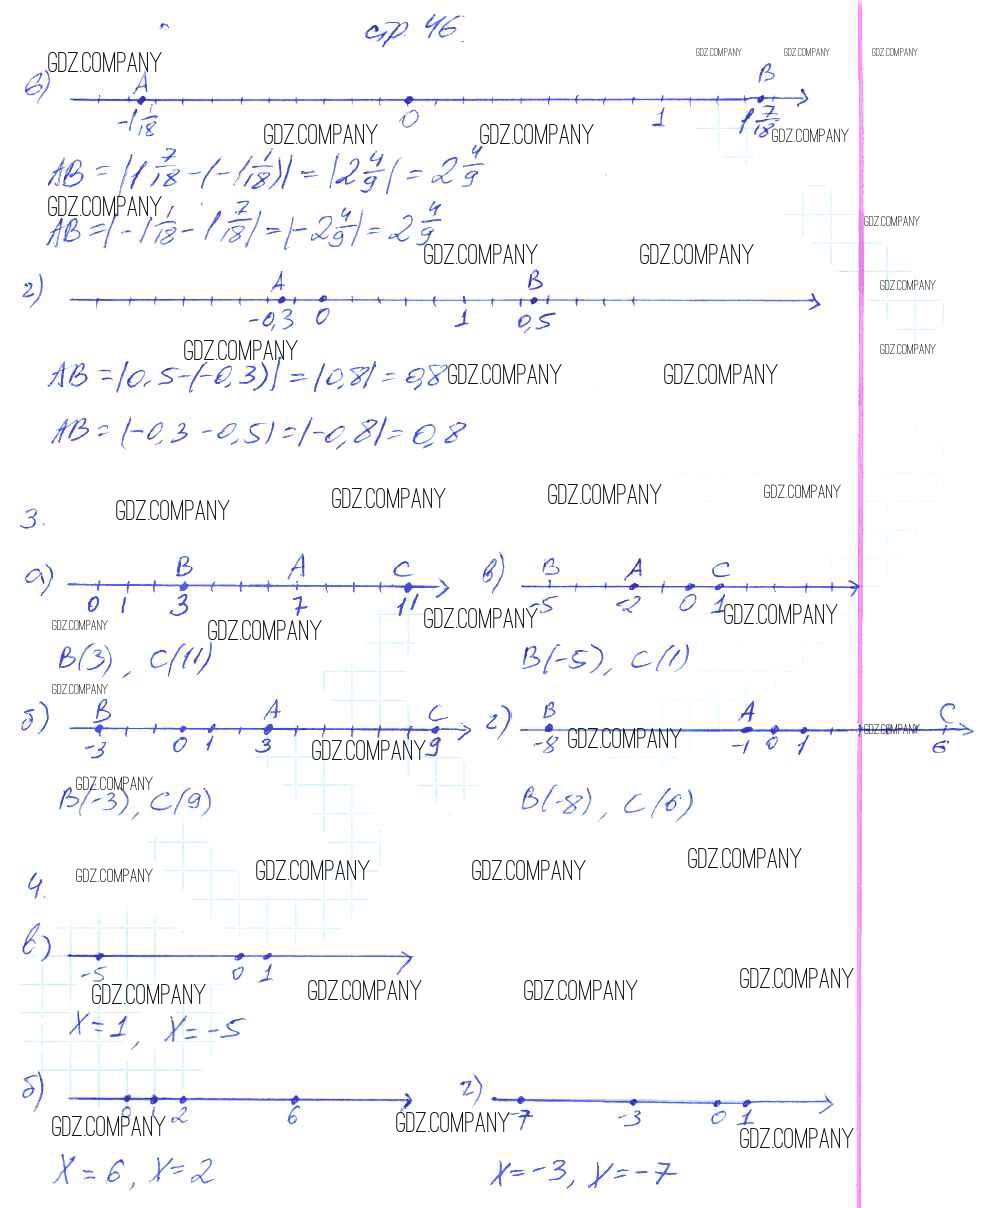 стр. 46.
GDZ.COMPANY GDZ.COMPANY GDZ.COMPANY GDZ.COMPANY
в) A B
-1 1/18 0 1 1 7/18
GDZ.COMPANY GDZ.COMPANY GDZ.COMPANY
AB = |1 7/18 - (-1 1/18)| = |2 4/9| = 2 4/9
GDZ.COMPANY GDZ.COMPANY
AB = |-1 1/18 - 1 7/18| = |-2 4/9| = 2 4/9
GDZ.COMPANY GDZ.COMPANY
г) A B GDZ.COMPANY
-0,3 0 1 0,5
GDZ.COMPANY GDZ.COMPANY
AB = |0,5-(-0,3)| = |0,8| = 0,8 GDZ.COMPANY GDZ.COMPANY
AB = |-0,3 - 0,5| = |-0,8| = 0,8
GDZ.COMPANY GDZ.COMPANY GDZ.COMPANY GDZ.COMPANY
3.
а) B A C
0 1 3 7 11
в) B A C
-5 -2 0 1
GDZ.COMPANY GDZ.COMPANY GDZ.COMPANY GDZ.COMPANY
B(3), C(11)
B(-5), C(1)
GDZ.COMPANY
б) B A C
-3 0 1 3 9
г) B A C
-8 -1 0 1 6
GDZ.COMPANY GDZ.COMPANY GDZ.COMPANY
GDZ.COMPANY
B(-3), C(9)
B(-8), C(6)
GDZ.COMPANY GDZ.COMPANY GDZ.COMPANY GDZ.COMPANY
4.
в)
-5 0 1
GDZ.COMPANY GDZ.COMPANY GDZ.COMPANY GDZ.COMPANY
X = 1, X = -5
б)
0 1 2 6
г)
-7 -3 0 1
GDZ.COMPANY GDZ.COMPANY GDZ.COMPANY
X = 6, X = 2
X = -3, X = -7